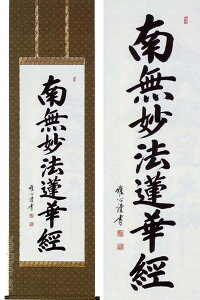 南無妙法蓮華經
南無妙法蓮華經